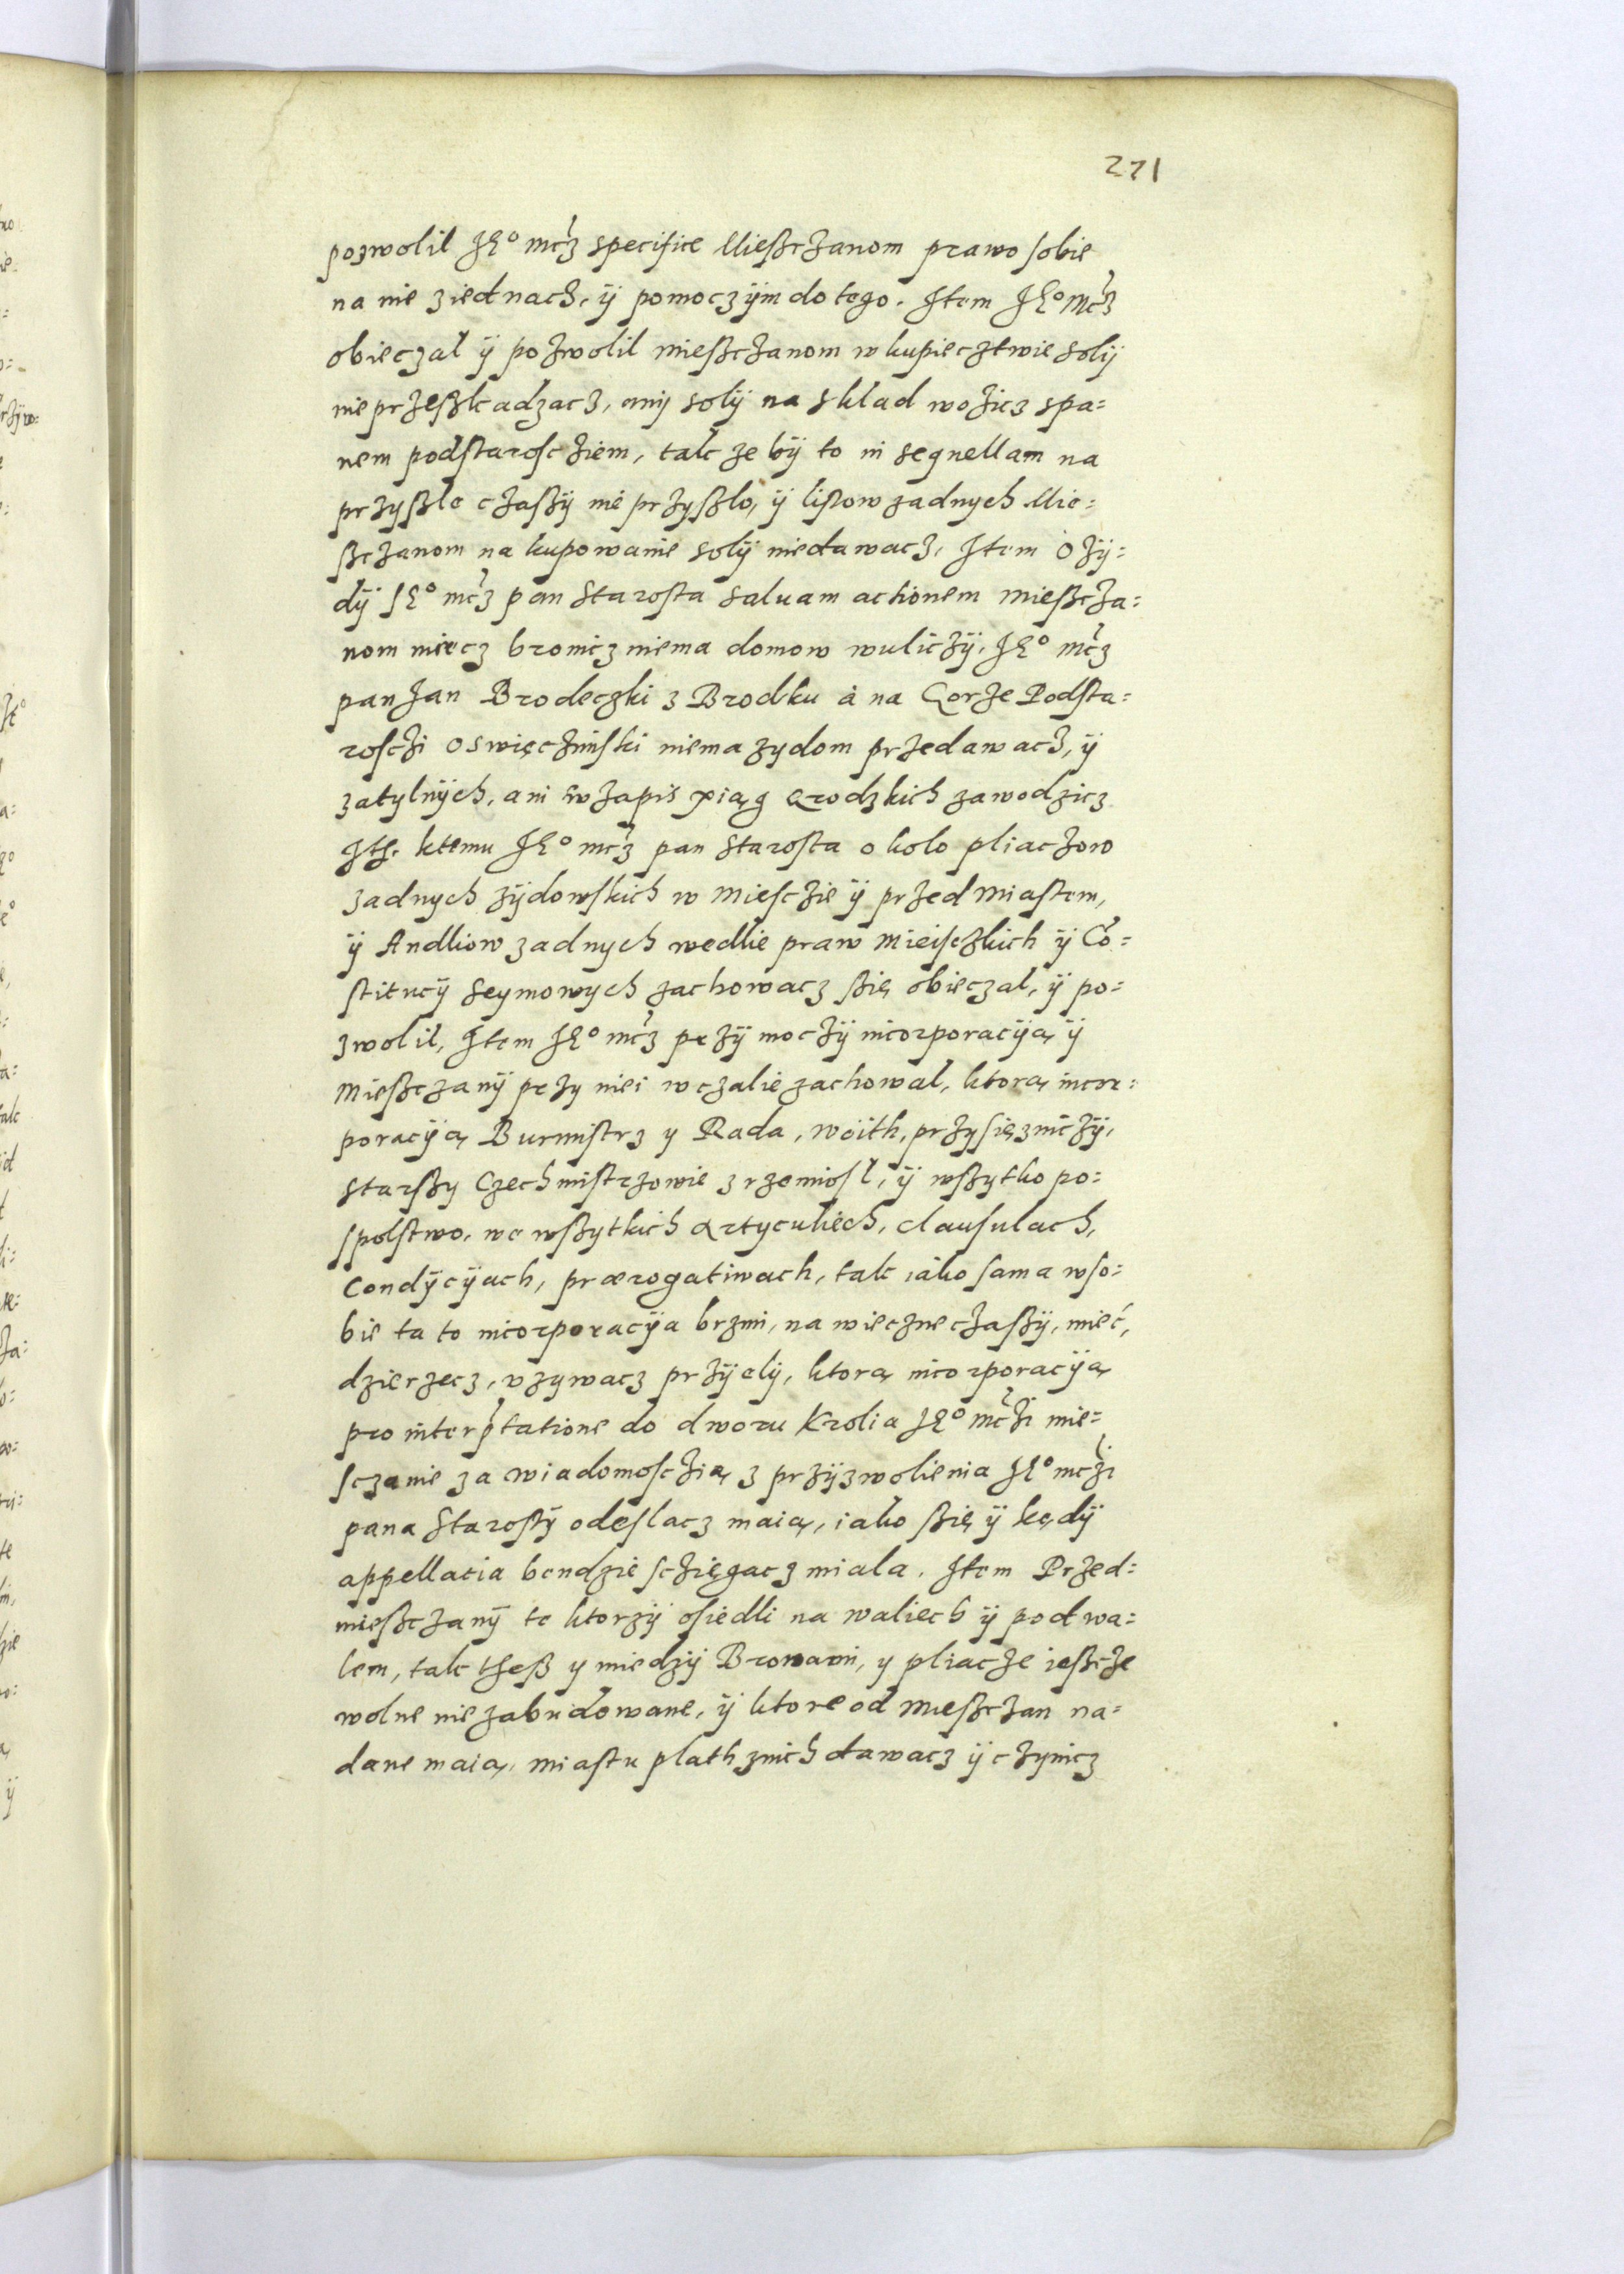 271
pozwolil JE° mcz specifice Mießczanom prawo sobie
na nie ziednach, ÿ pomoczÿm do tego. Item JE° Mcz
obieczal ÿ pozwolil mießczanom w kupiecztwie solÿ
nie przeßkadzacz, anÿ solÿ na sklad wozicz spa=
nem podstaroscziem, tak ze bÿ to in sequellam na
przyßle czaßÿ nie przyßlo, ÿ listow zadnych Mie=
ßczanom na kupowanie solÿ niedawacz, Item o zÿ=
dÿ JE° mcz pan Starosta saluam actionem mießcza=
nom miecz bronicz niema domow wuliczÿ. JE° mcz
pan Jan Brodeczki z Brodku à na Gorze Podsta=
rosczi oswięcziński niema zydom przedawacz, ÿ
zatylnÿch, ani w zapis xiąg Grodzkich zawodzicz
Ith. ktemu JE° mcz pan Starosta okolo pliaczow
zadnych zÿdowskich w miesczie ÿ przed miastem,
ÿ Andliow zadnych wedlie praw mieisczkich ÿ Cō=
stitucÿ Seymowych zachowacz ßię obieczal, ÿ po=
zwolil, Item JE° mcz przÿ moczÿ incorporacÿą ÿ
mießczanÿ przy niei w czalie zachowal, ktorą incor=
poracÿą Burmistrz y Rada, wöith, przysięzniczÿ,
starßy Czechmistrzowie z rzemiosl, ÿ wßytko po=
spolstwo, we wßytkich artyculiech, clausulach,
Condÿcÿach, prærogatiwach, tak iako sama wso=
bie ta to incorporacÿa brzmi, na wieczne czaßÿ, mieć,
dzierzecz, vzywacz przÿelÿ, ktorą incorporacÿą
pro interptatione do dworu Krolia JE° mczi mie=
sczanie za wiadomosczią z przÿzwolienia JE° mczi
pana Starostÿ odeslacz maią, iako ßię ÿ kędÿ
appellacia bendzie sczięgacz miala. Item Przed=
mießczanÿ te ktorzÿ osiedli na waliech ÿ pod wa=
lem, tak theß y miedzÿ Browarni, y pliacze ießcze
wolne nie zabudowane, ÿ ktore od Mießczan na=
dane maią, miastu plath znich dawacz ÿ czynicz